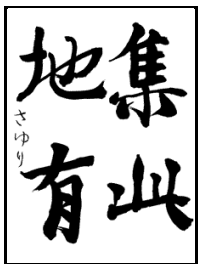 集此
地有
さゆり